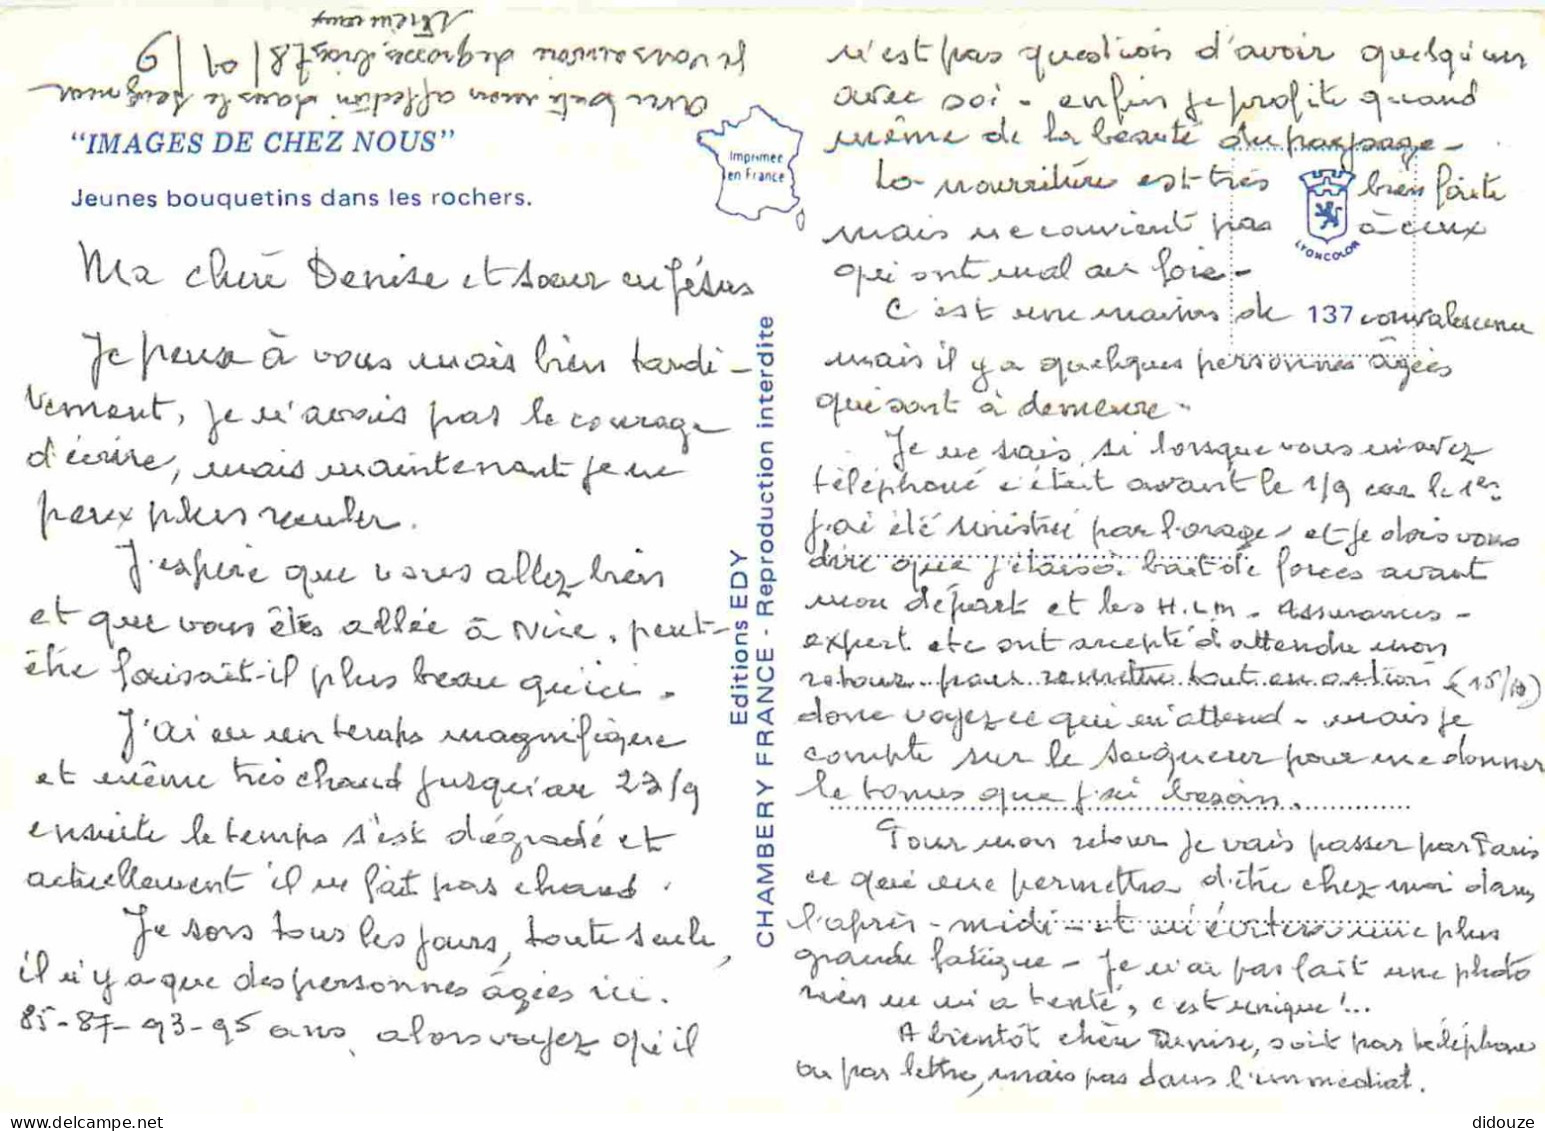 "IMAGES DE CHEZ NOUS"
Jeunes bouquetins dans les rochers.
Imprimée
en France
Ma chère Denise et soeur en Jésus
Je pense à vous mais bien tardi-
vement, je n'avais pas le courage
d'écrire, mais maintenant je ne
peux plus reculer.
J'espère que vous allez bien
et que vous êtes allée à Nice, peut-
être faisait-il plus beau qu'ici.
J'ai eu un temps magnifique
et même très chaud jusqu'au 23/9
ensuite le temps s'est dégradé et
actuellement il ne fait pas chaud.
Je sors tous les jours, toute seule,
il n'y a que des personnes âgées ici.
85-87-93-95 ans, alors voyez qu'il
Editions EDY
CHAMBERY FRANCE - Reproduction interdite
n'est pas question d'avoir quelqu'un
avec soi - enfin je profite quand
même de la beauté du paysage -
La nourriture est très bien faite
mais ne convient pas à ceux
qui ont mal au foie -
C'est une maison de convalescence
mais il y a quelques personnes âgées
qui sont à demeure -
LYONCOLOR
137
Je ne sais si lorsque vous m'avez
téléphoné c'était avant le 1/9 car le 1er
j'ai été sinistrée par l'orage, et je dois vous
dire que j'étais à bout de forces avant
mon départ et les H.L.M. - assurances -
expert etc ont accepté d'attendre mon
retour pour remettre tout en action
donc voyez ce qui m'attend - mais je
compte sur le Seigneur pour me donner
le tonus que j'ai besoin.
Pour mon retour je vais passer par Paris
ce qui me permettra d'être chez moi dans
l'après-midi - et m'évitera une plus
grande fatigue - Je n'ai pas fait une photo
rien ne m'a tenté, c'est unique !...
A bientôt chère Denise, soit par téléphone
ou par lettre, mais pas dans l'immédiat.
avec toute mon affection dans le Seigneur
je vous envoie de grosses bises
didouze